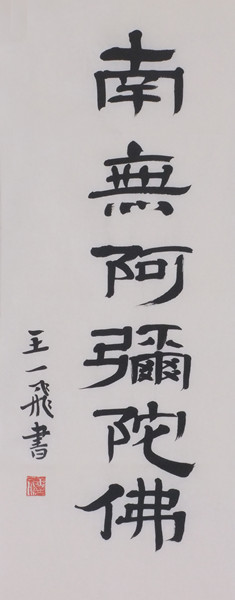 南無阿彌陀佛
王一飛書